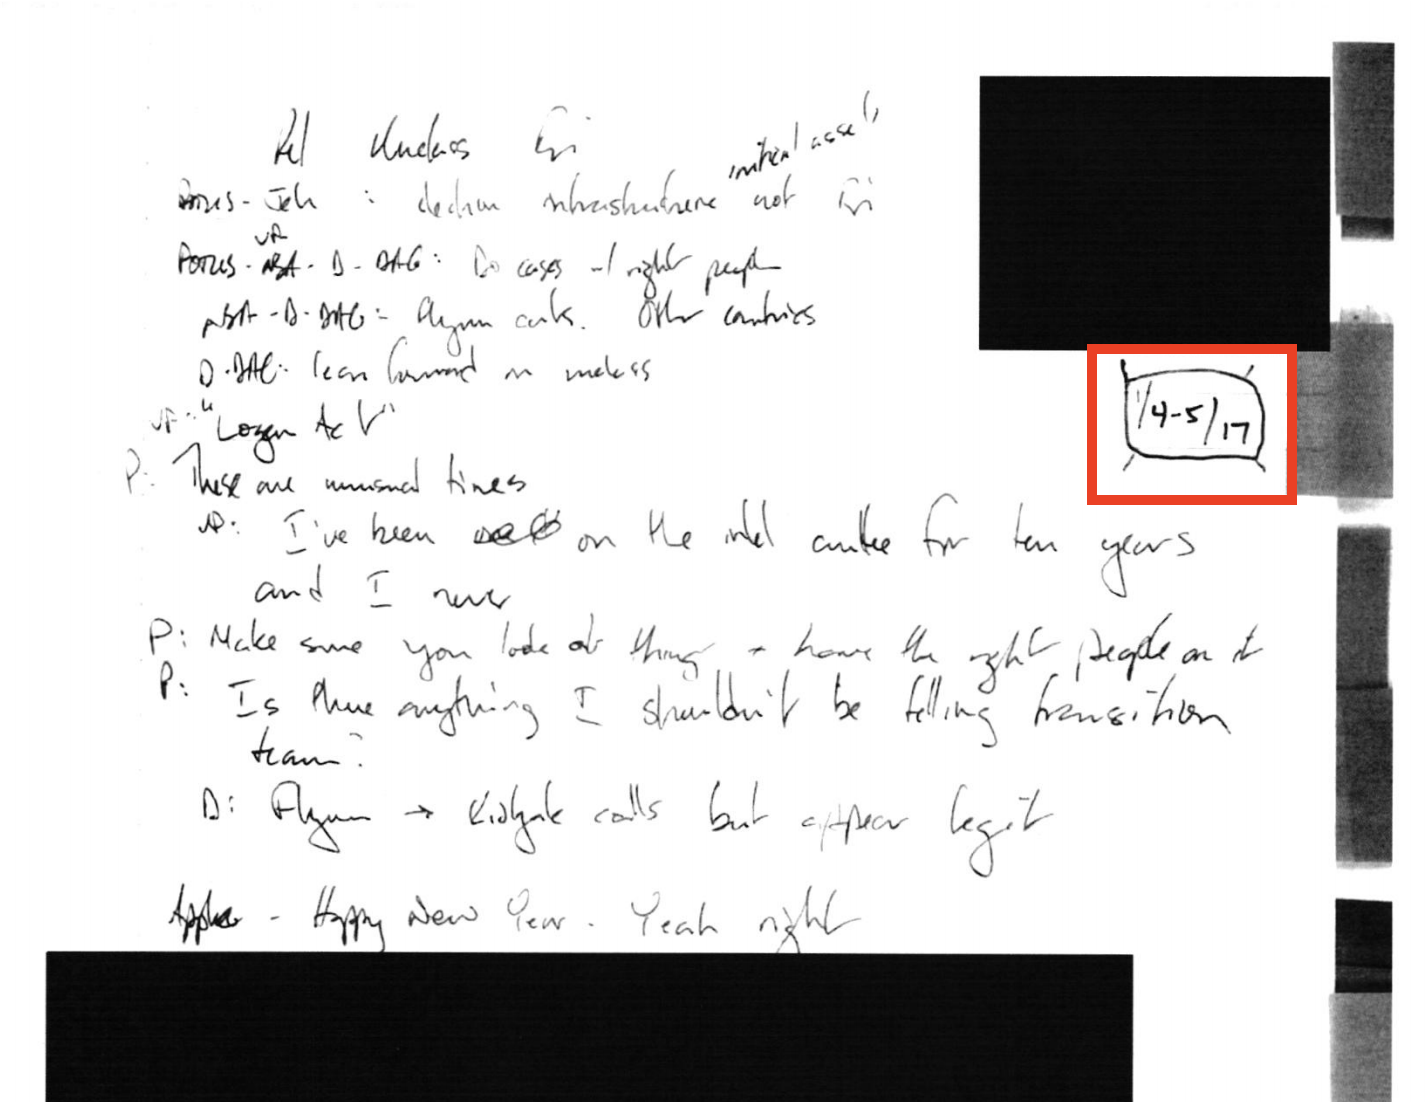 Rel Unclass
initial assets
POTUS - Jeh : election infrastructure not
VP
POTUS - NSA - D - DAG: Do cases w/ right people
NSA - D - DAG: Flynn cuts. Other countries
D - DAG: lean forward on unclass
VP: "Logan Act"
P: These are unusual times
VP: I've been on the intel cmttee for ten years
and I never
P: Make sure you look at things + have the right people on it
P: Is there anything I shouldn't be telling transition
team?
D: Flynn → Kislyak calls but appear legit
- Happy New Year. Yeah right
1/4-5/17